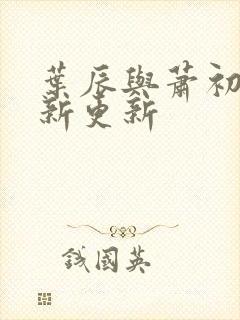 葉辰與蕭初
新更新
錢國英